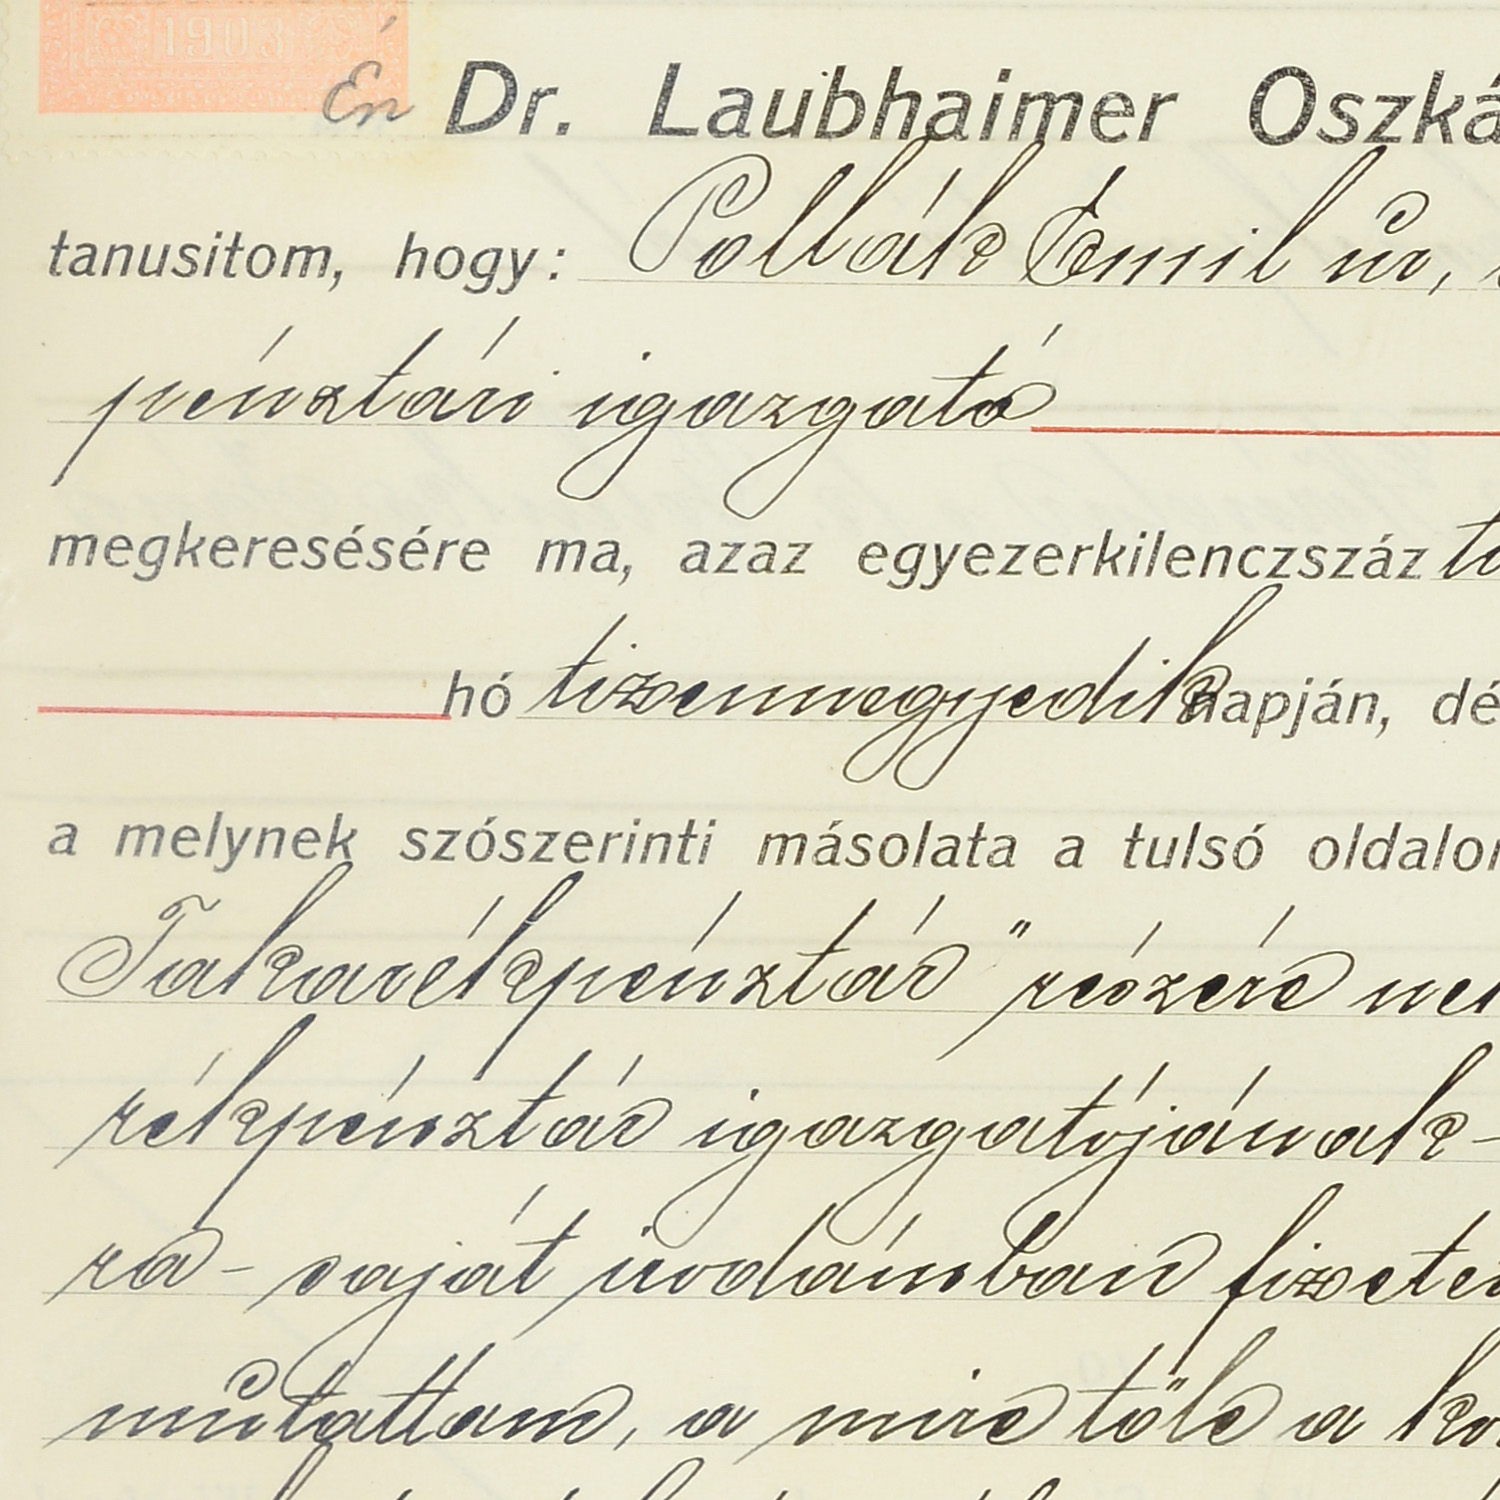 1903
Én Dr. Laubhaimer Oszká
tanusitom, hogy: Pollák Emil úr,
pénztári igazgató
megkeresésére ma, azaz egyezerkilenczszáz
hó tizennegyedik napján, dé
a melynek szószerinti másolata a tulsó oldalon
Takarékpénztár" részére
rékpénztár igazgatójának-
ra - saját irodámban
mutattam, a mire tőle a